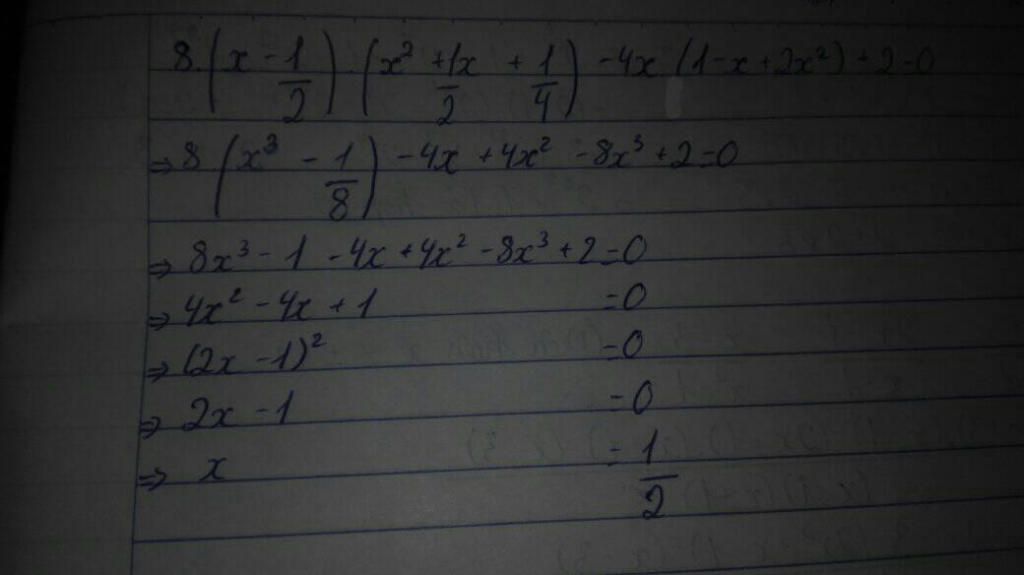 8.(x - 1/2).(x² + 1/2x + 1/4) - 4x(1 - x + 2x²) + 2 = 0
⇒ 8(x³ - 1/8) - 4x + 4x² - 8x³ + 2 = 0
⇒ 8x³ - 1 - 4x + 4x² - 8x³ + 2 = 0
⇒ 4x² - 4x + 1 = 0
⇒ (2x - 1)² = 0
⇒ 2x - 1 = 0
⇒ x = 1/2